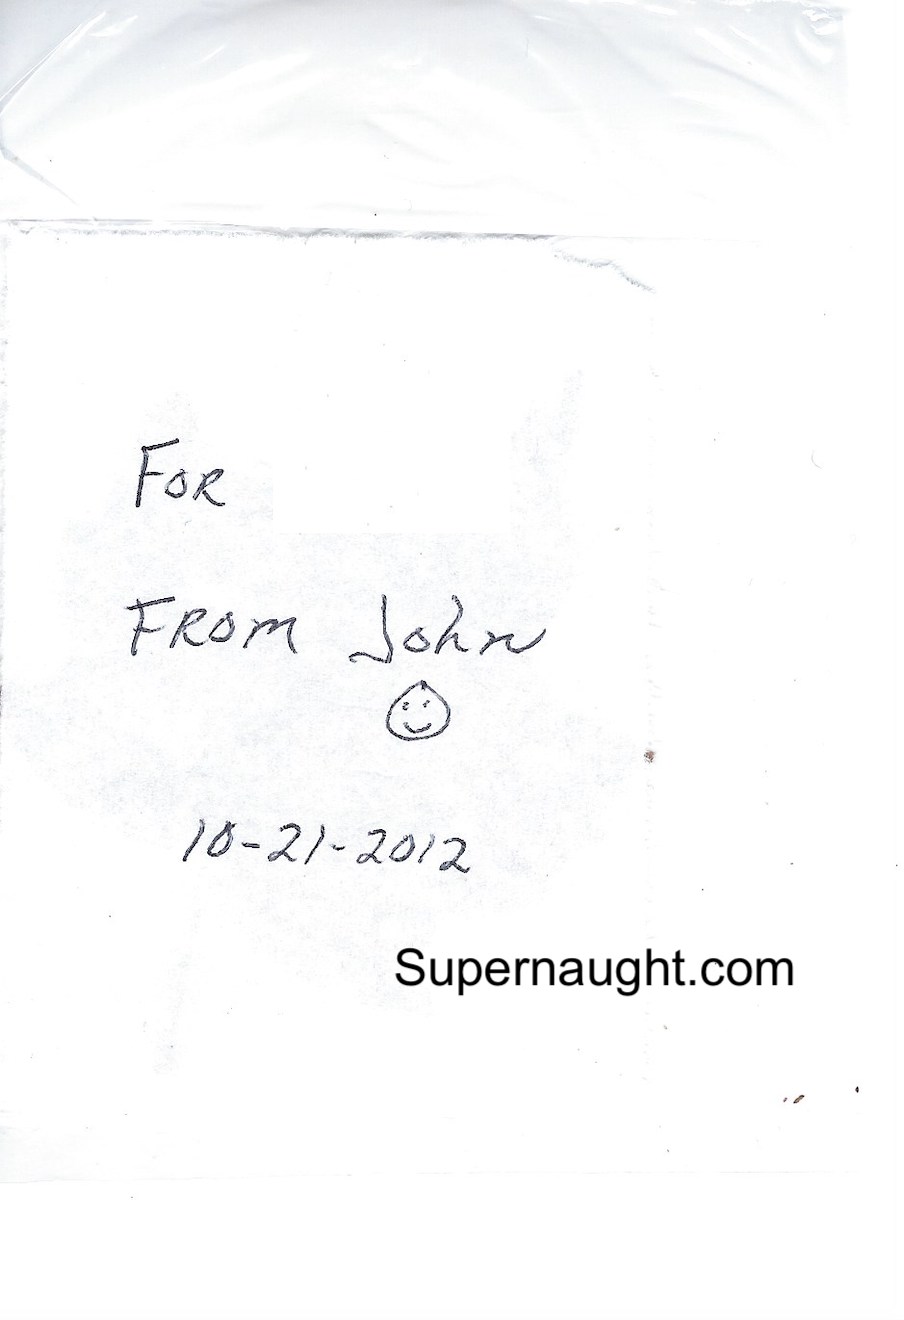 FOR
FROM John
10-21-2012
Supernaught.com